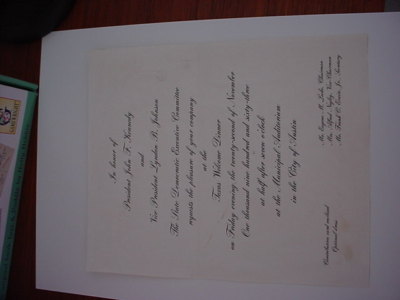 In honor of
President John F. Kennedy
and
Vice President Lyndon B. Johnson
The State Democratic Executive Committee
requests the pleasure of your company
at the
Texas Welcome Dinner
on Friday evening the twenty-second of November
One thousand nine hundred and sixty-three
at half after seven o'clock
at the Municipal Auditorium
in the City of Austin
Mr. Eugene M. Locke, Chairman
Mrs. Alfred Negley, Vice-Chairman
Mr. Frank C. Erwin, Jr., Secretary
Contribution card enclosed
Optional dress